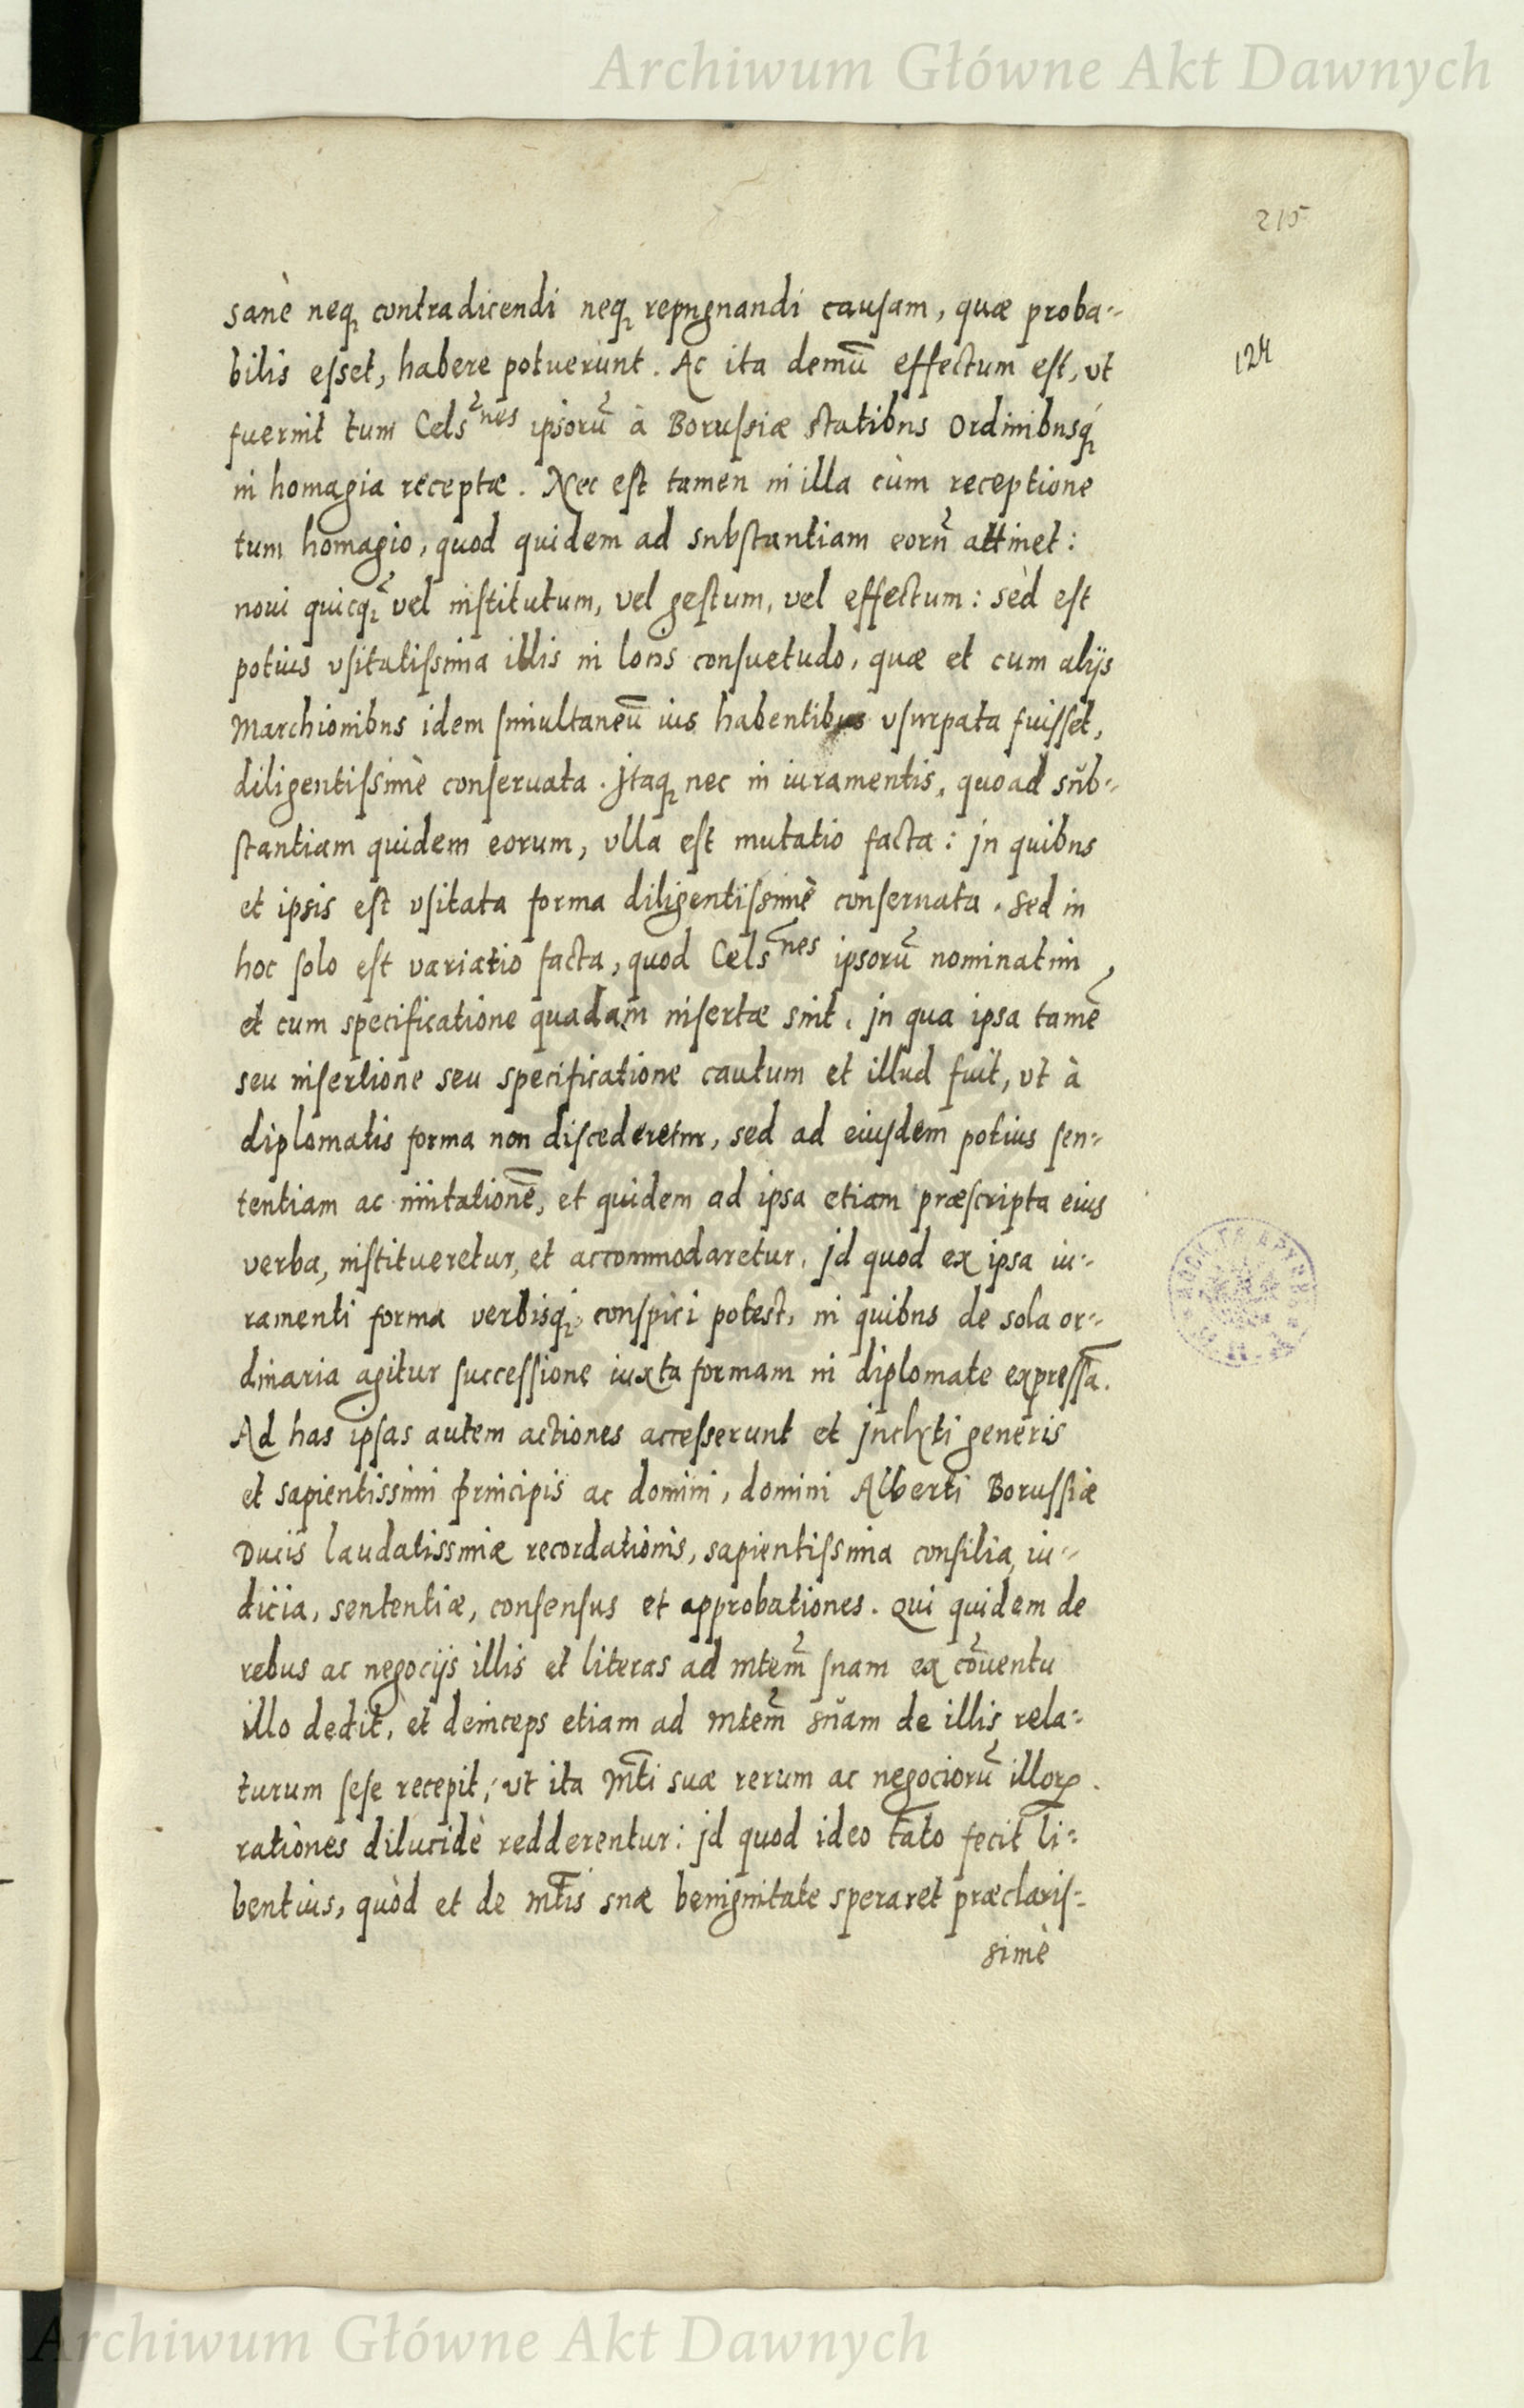 Archiwum Główne Akt Dawnych
215
sanè neq₃ contradicendi neq₃ repugnandi causam, quæ proba-
124
bilis esset, habere potuerunt. Ac ita demū effectum est, vt
fuerint tum Cels^nes ipsorū à Borussiæ statibus Ordinibusq₃
in homagia receptæ. Nec est tamen in illa cùm receptione
tum homagio, quod quidem ad substantiam eorū attinet:
noui quicq₃ vel institutum, vel gestum, vel effectum: sed est
potius vsitatissima illis in locis consuetudo, quæ et cum alijs
Marchionibus idem simultaneū ius habentibus vsurpata fuisset,
diligentissimè conseruata. Itaq₃ nec in iuramentis, quoad sub-
stantiam quidem eorum, vlla est mutatio facta: in quibus
et ipsis est vsitata forma diligentissimè conseruata. Sed in
hoc solo est variatio facta, quod Cels^nes ipsorū nominatim,
et cum specificatione quadam insertæ sint. In qua ipsa tamē
seu insertione seu specificatione cautum et illud fuit, vt à
diplomatis forma non discederetur, sed ad eiusdem potius sen-
tentiam ac imitationē, et quidem ad ipsa etiam præscripta eius
verba, institueretur, et accommodaretur. Id quod ex ipsa iu-
ramenti forma verbisq₃ conspici potest, in quibus de sola or-
dinaria agitur successione iuxta formam in diplomate expressā.
Ad has ipsas autem actiones accesserunt et Inclyti generis
et sapientissimi Principis ac domini, domini Alberti Borussiæ
Ducis laudatissimæ recordationis, sapientissima consilia, iu-
dicia, sententiæ, consensus et approbationes. Qui quidem de
rebus ac negocijs illis et literas ad Mtem̄ suam ex cōuentu
illo dedit, et deinceps etiam ad Mtem̄ suam de illis rela-
turum sese recepit, vt ita Mti suæ rerum ac negociorū illorꝝ.
rationes dilucidè redderentur: Id quod ideo tāto fecit li-
bentius, quòd et de Mtis suæ benignitate speraret præclaris-
simè
Archiwum Główne Akt Dawnych